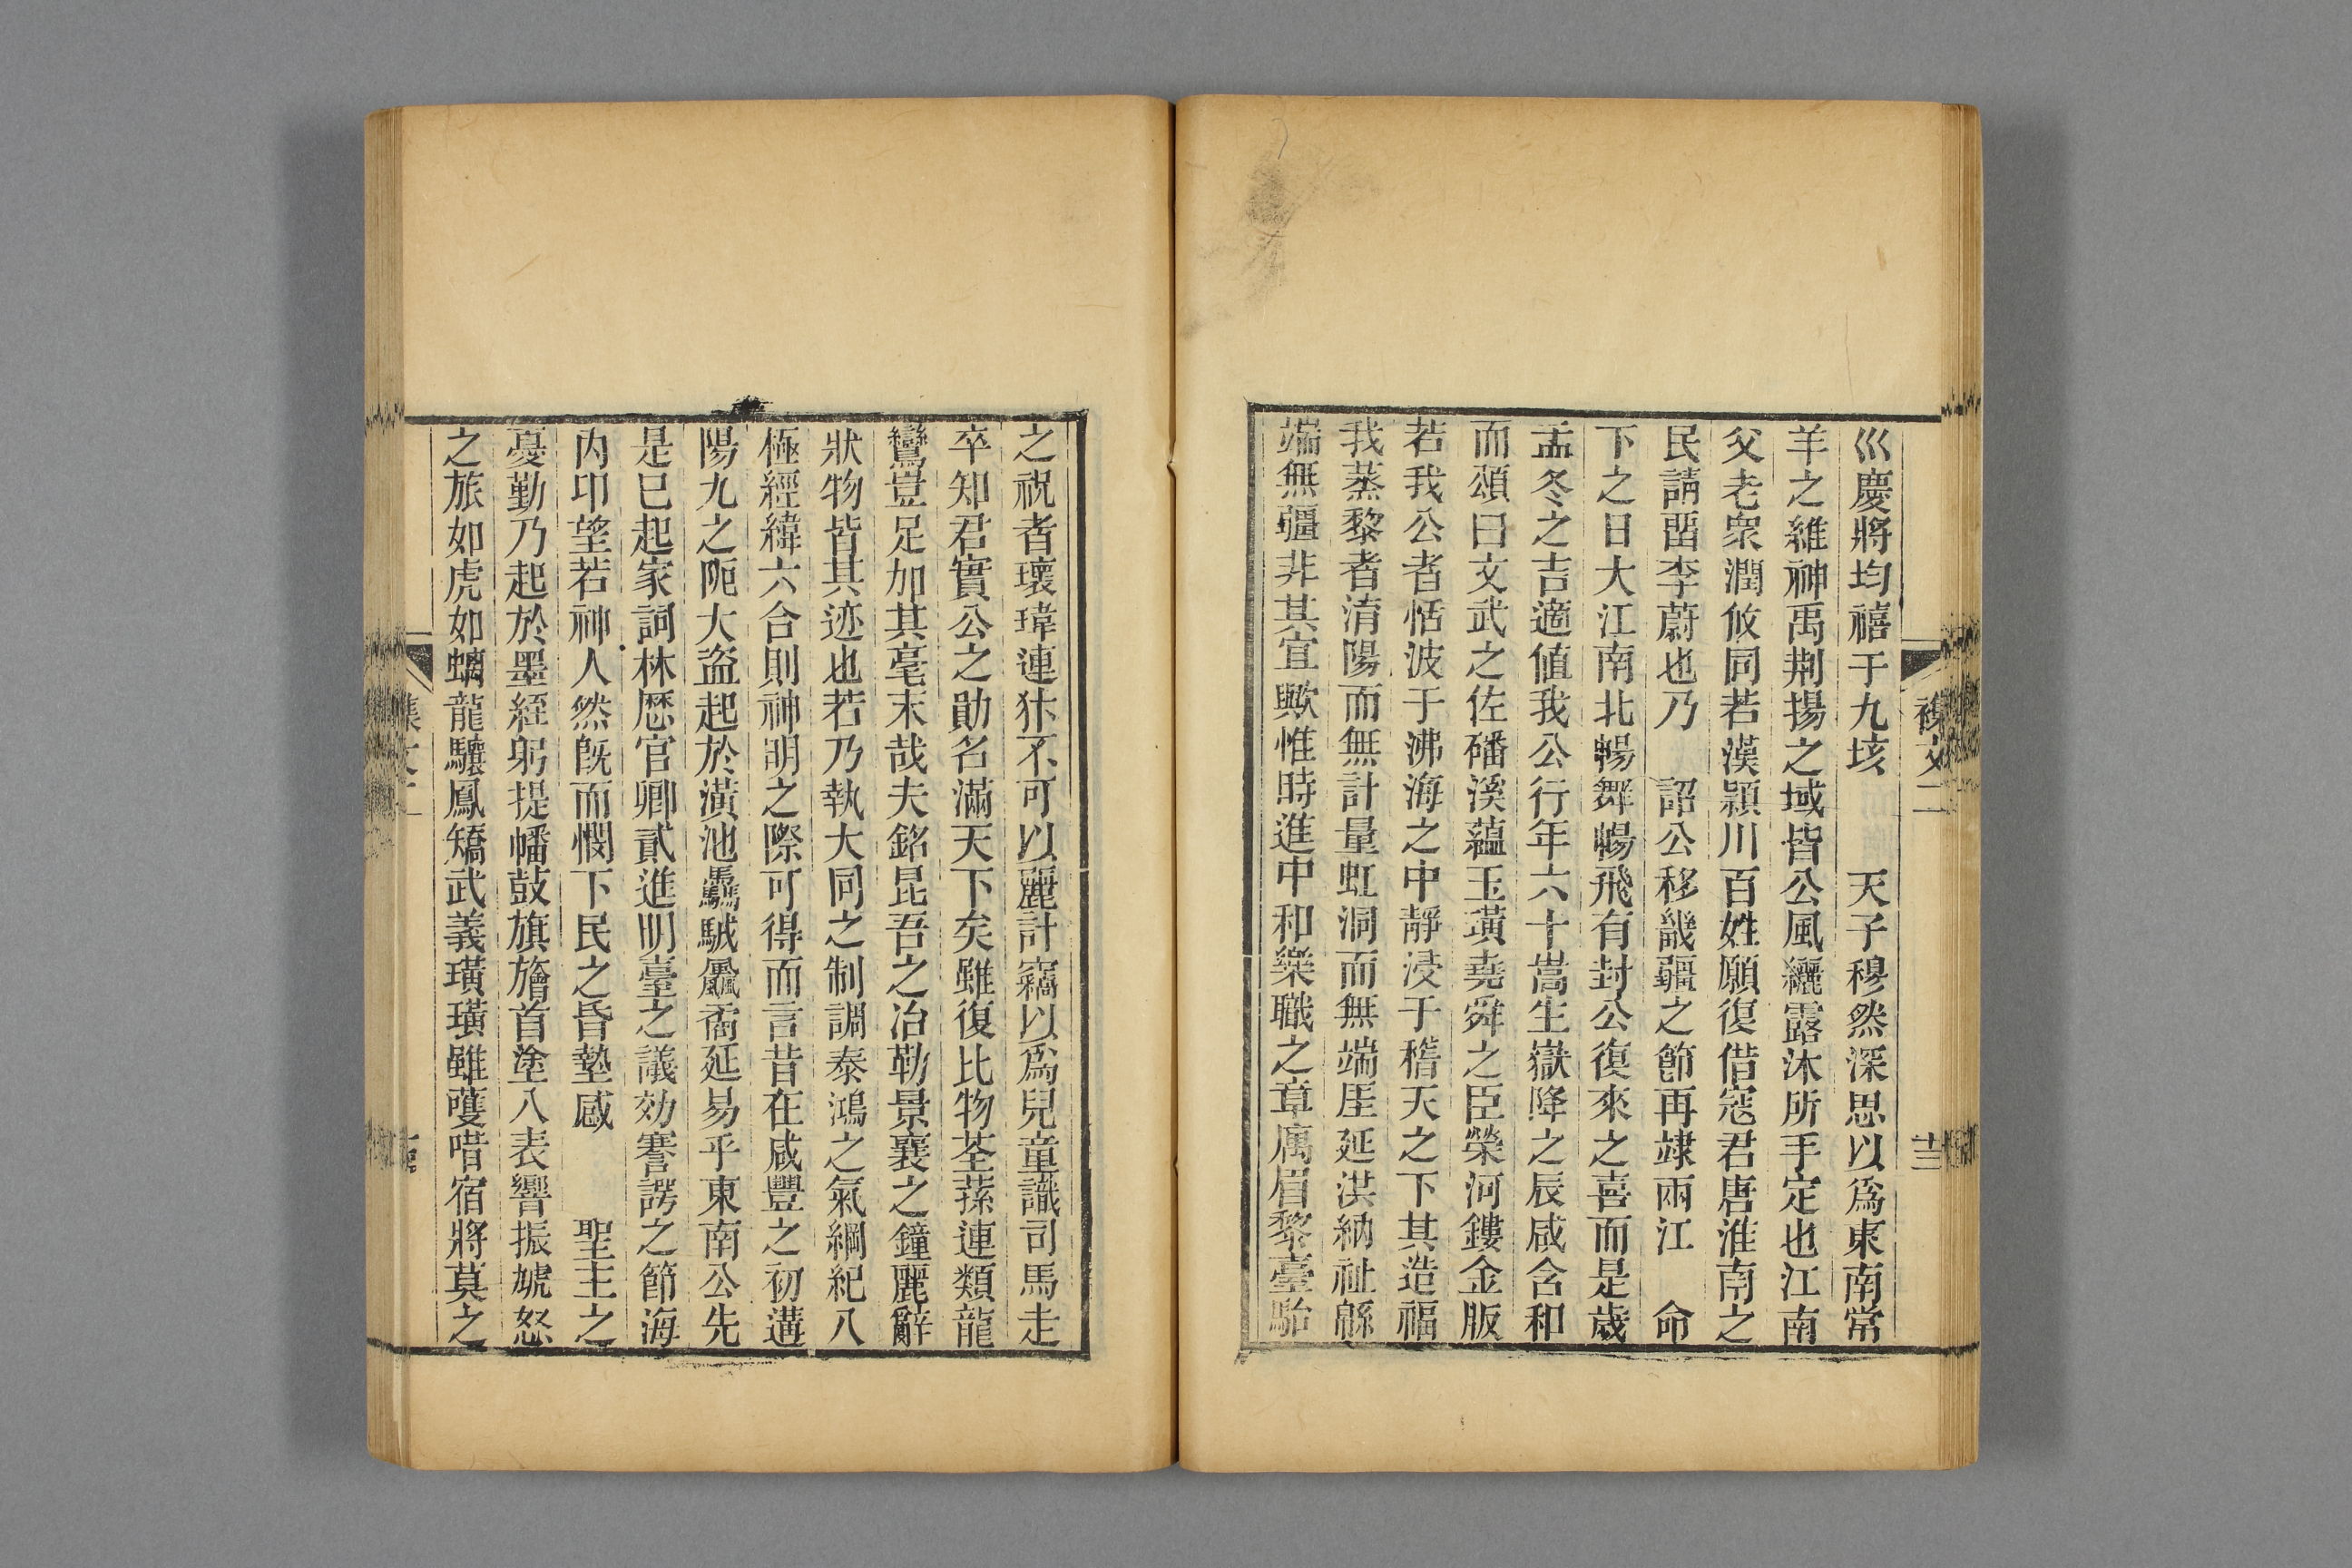 巛慶將均禧于九垓 天子穆然深思以爲東南常
羊之維神禹荆揚之域皆公風纚露沐所手定也江南
父老衆潤攸同若漢潁川百姓願復借寇君唐淮南之
民請畱李蔚也乃 詔公移畿疆之節再肂兩江 命
下之日大江南北暢舞暢飛有封公復來之喜而是歲
孟冬之吉適値我公行年六十嵩生嶽降之辰咸含和
而頌曰文武之佐磻溪蘊玉璜堯舜之臣榮河鏤金版
若我公者恬波于沸海之中靜浸于稽天之下其造福
我蒸黎者淯陽而無計量虹洞而無端厓延洪納祉緜
端無疆非其宜歟惟時進中和樂職之章厲眉黎臺駘
襍文二
十三
之祝者瓌瑋連犿不可以麗計竊以爲兒童識司馬走
卒知君實公之勛名滿天下矣雖復比物荃蓀連類龍
鸞豈足加其毫末哉夫銘昆吾之冶勒景襄之鐘麗辭
狀物皆其迹也若乃執大同之制調泰鴻之氣綱紀八
極經緯六合則神明之際可得而言昔在咸豐之初遘
陽九之阨大盜起於潢池驫駥飍矞延易乎東南公先
是已起家詞林歷官卿貳進明臺之議効謇諤之節海
內卬望若神人然旣而憫下民之昏墊感 聖主之
憂勤乃起於墨絰躬提幡鼓旗旝首塗八表響振虓怒
之旅如虎如螭龍驤鳳矯武義璜璜雖蒦唶宿將莫之